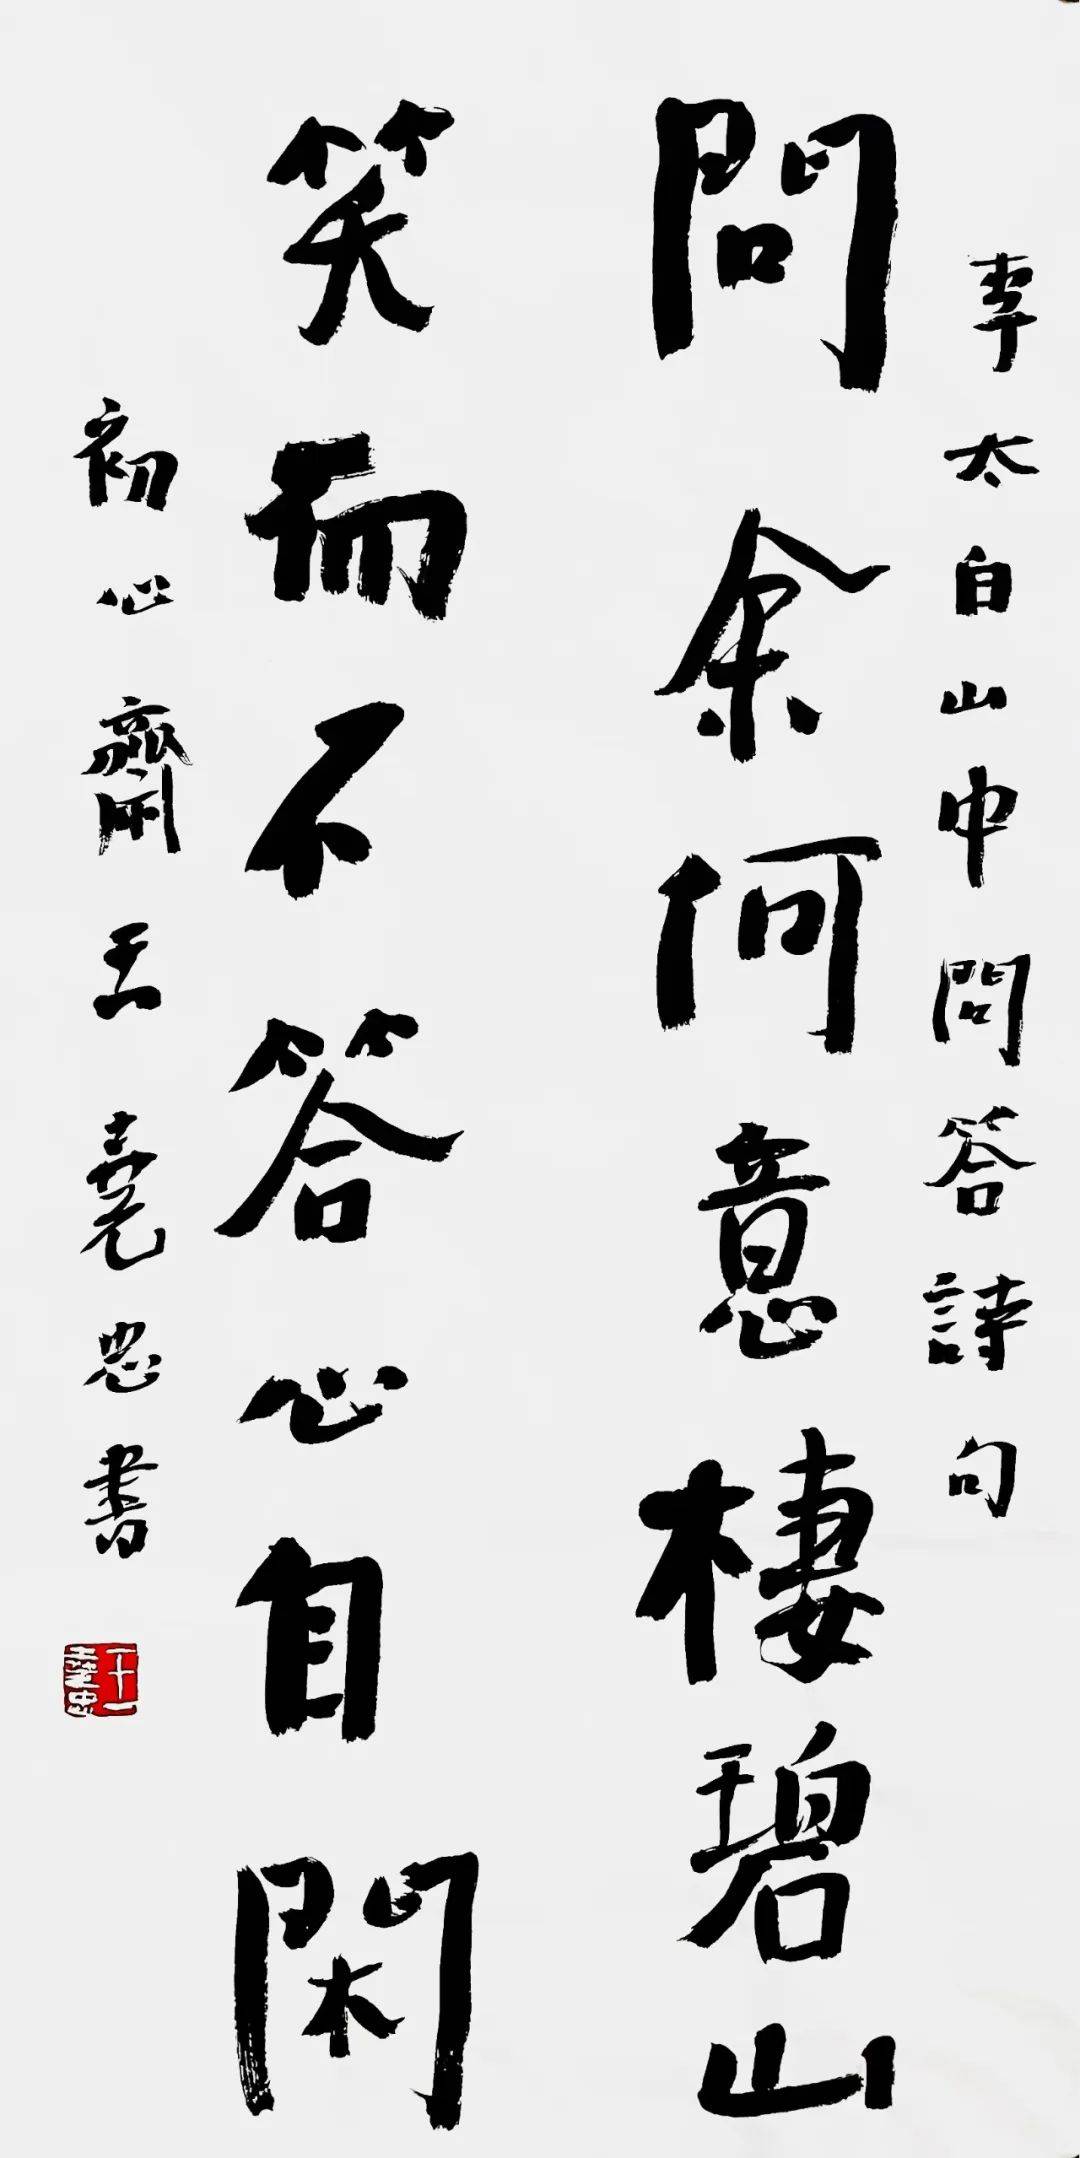 李太白山中問答詩句
問余何意棲碧山
笑而不答心自閑
初心齋王堯忠書
王堯忠